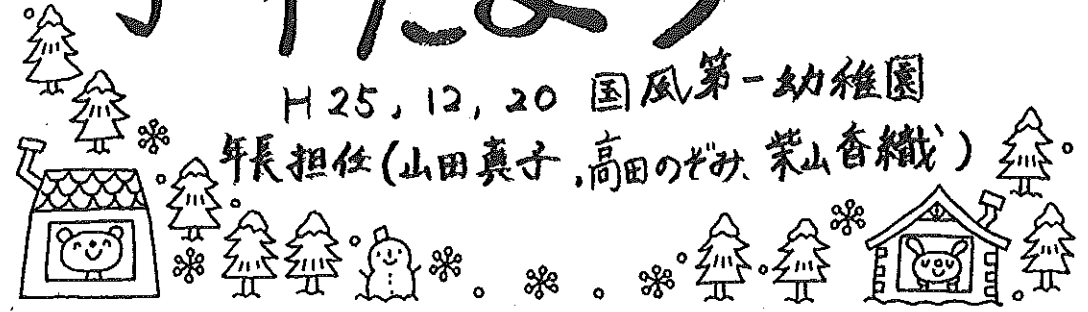 だより
H25,12,20 国風第一幼稚園
年長担任(山田真子,高田のぞみ、柴山香織)